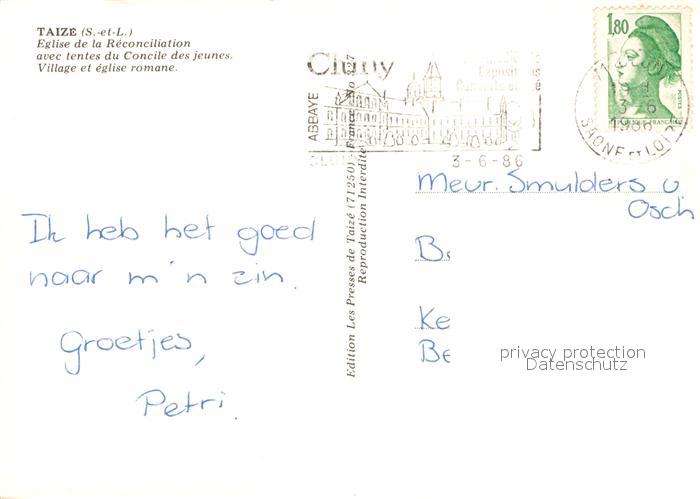 TAIZE (S.-et-L.)
Eglise de la Réconciliation
avec tentes du Concile des jeunes.
Village et église romane.
Cluny
ABBAYE
3-6-86
1,80
3-6
1986
SAONE ET LOIRE
Edition Les Presses de Taizé (71250) - France - No
Reproduction Interdite
Ik heb het goed
naar m'n zin.
Groetjes,
Petri.
Meur. Smulders v.
Osch
Be
Ke
Be
privacy protection
Datenschutz